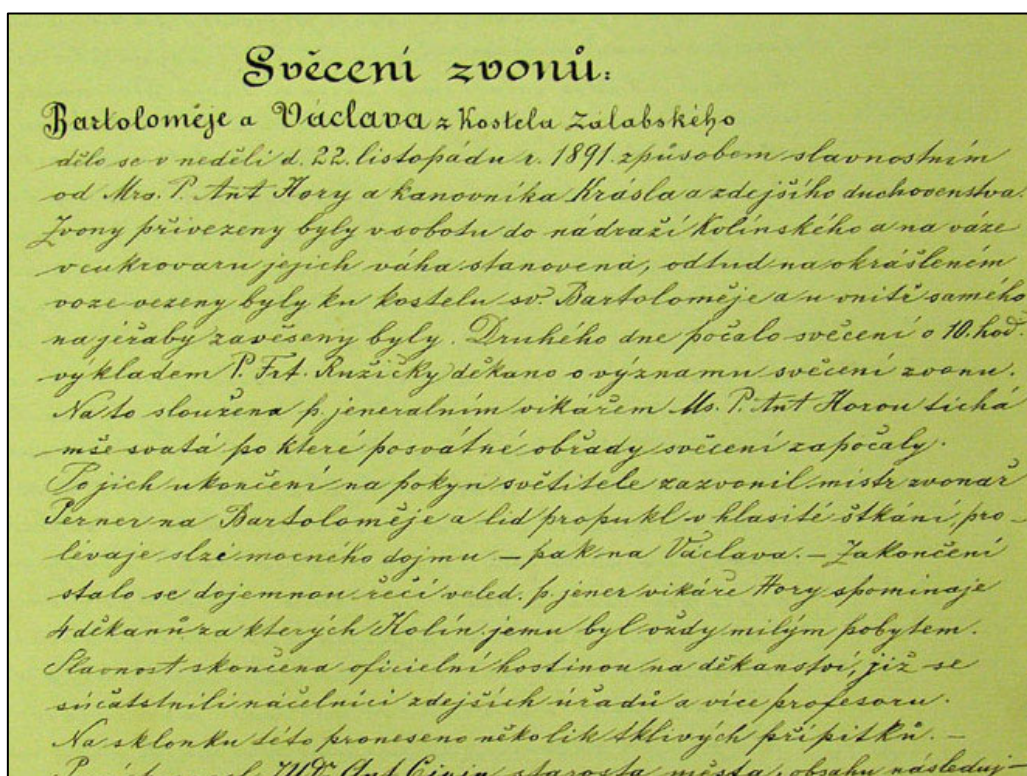 Svěcení zvonů:
Bartoloměje a Václava z Kostela Zálabského
dělo se v neděli d. 22. listopádu r. 1891. způsobem slavnostním
od Mra. P. Ant Hory a kanovníka Krásla a zdejšího duchovenstva.
Zvony přivezeny byly v sobotu do nádraží Kolínského a na váze
v cukrovaru jejich váha stanovená, odtud na okrášleném
voze vezeny byly ku kostelu sv. Bartoloměje a u vnitř samého
na jeřaby zavěseny byly. Druhého dne počalo svěcení o 10. hod.
výkladem P. Frt. Ružičky děkano o významu svěcení zvonu.
Na to sloužena p. jeneralním vikářem Ms. P. Ant Horou tichá
mše svatá po které posvátné obřady svěcení započaly.
Po jich ukončení na pokyn světitele zazvonil mistr zvonař
Perner na Bartoloměje a lid propukl v hlasité štkání, pro-
lévaje slzé mocného dojmu – pak na Václava. – Zakončení
stalo se dojemnou řečí veled. p. jener vikáře Hory spominaje
4 děkanů za kterých Kolín jemu byl vždy milým pobytem.
Slavnost skončena oficielní hostinou na děkanství, již se
súčatstnili náčelníci zdejších úřadů a více profesoru.
Na sklonku této proneseno několik tklivých přípitků. –
JUDr Ant Čivín starosta města, obsahu následuj-